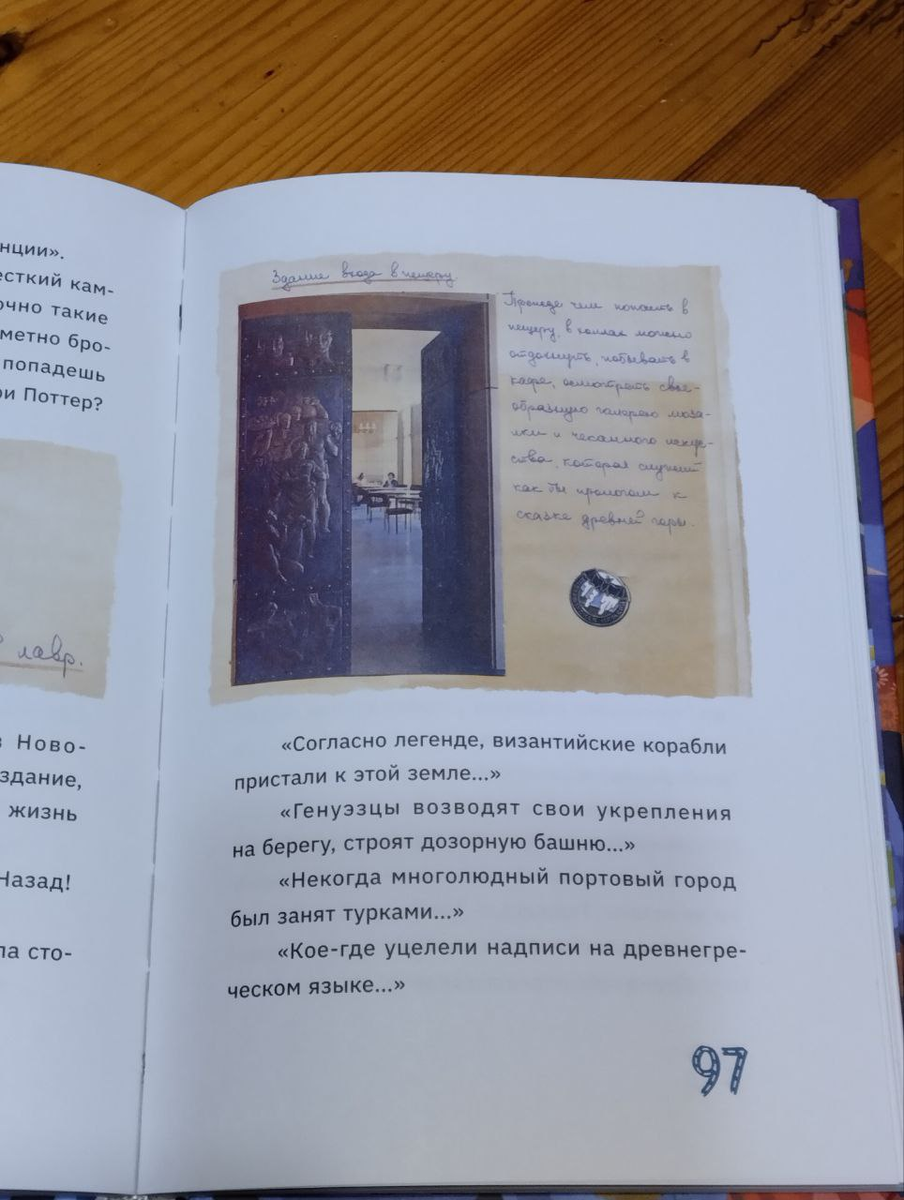 нции».
есткий кам-
очно такие
метно бро-
попадешь
ри Поттер?
лавр.
в Ново-
здание,
жизнь
Назад!
ла сто-
Здание входа в пещеру.
Прежде чем попасть в
пещеру, в холлах можно
отдохнуть, побывать в
кафе, осмотреть свое-
образную галерею моза-
ики и чеканного искус-
ства, которая служит
как бы прологом к
сказке древней горы.
«Согласно легенде, византийские корабли
пристали к этой земле...»
«Генуэзцы возводят свои укрепления
на берегу, строят дозорную башню...»
«Некогда многолюдный портовый город
был занят турками...»
«Кое-где уцелели надписи на древнегре-
ческом языке...»
97